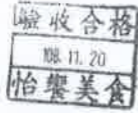 驗收合格
108.11.20
怡饗美食